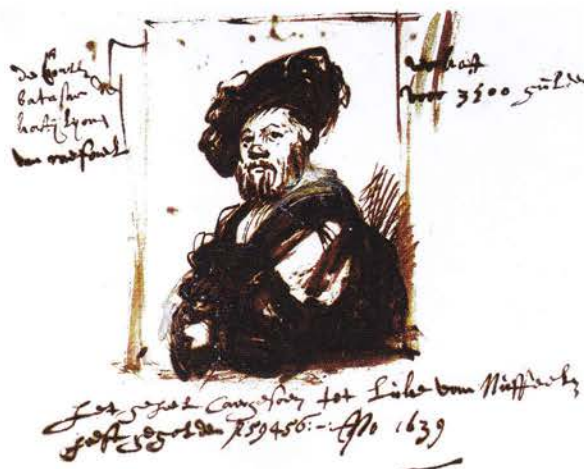 de Conte
batasar de
kastylyone
van raefael
verkoft
voor 3500 gulden
het geheel Caergesoen tot Luke van Nuffeelen
heeft gegolden f 59456:-: Ao 1639